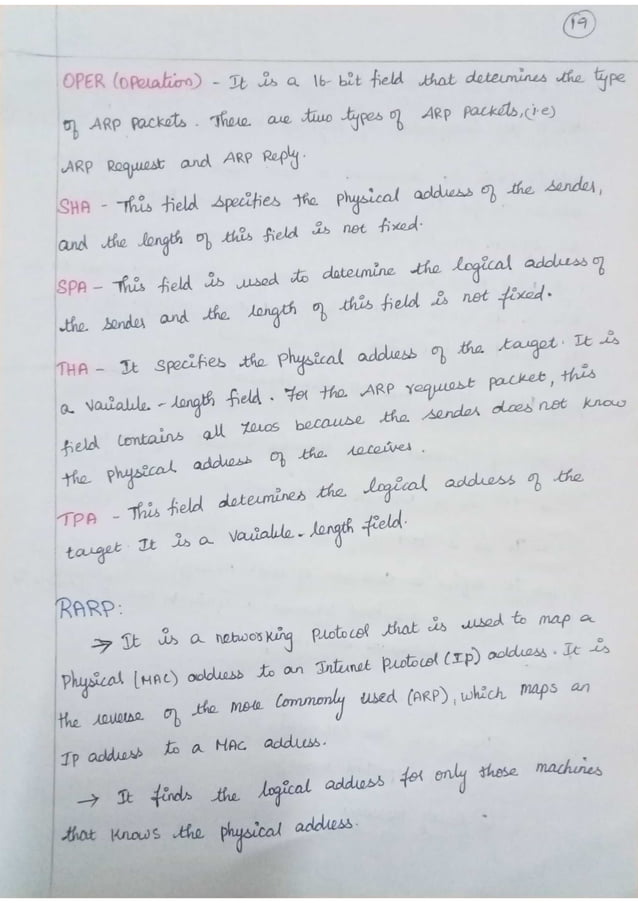 19
OPER (Operation) - It is a 16-bit field that determines the type
of ARP Packets. There are two types of ARP Packets, (i.e)
ARP Request and ARP Reply.
SHA - This field specifies the physical address of the sender,
and the length of this field is not fixed.
SPA - This field is used to determine the logical address of
the sender and the length of this field is not fixed.
THA - It specifies the physical address of the target. It is
a variable-length field. For the ARP request packet, this
field contains all zeros because the sender does not know
the physical address of the receiver.
TPA - This field determines the logical address of the
target. It is a variable-length field.
RARP:
→ It is a networking protocol that is used to map a
Physical (MAC) address to an Internet Protocol (IP) address. It is
the reverse of the more commonly used (ARP), which maps an
IP address to a MAC address.
→ It finds the logical address for only those machines
that knows the physical address.